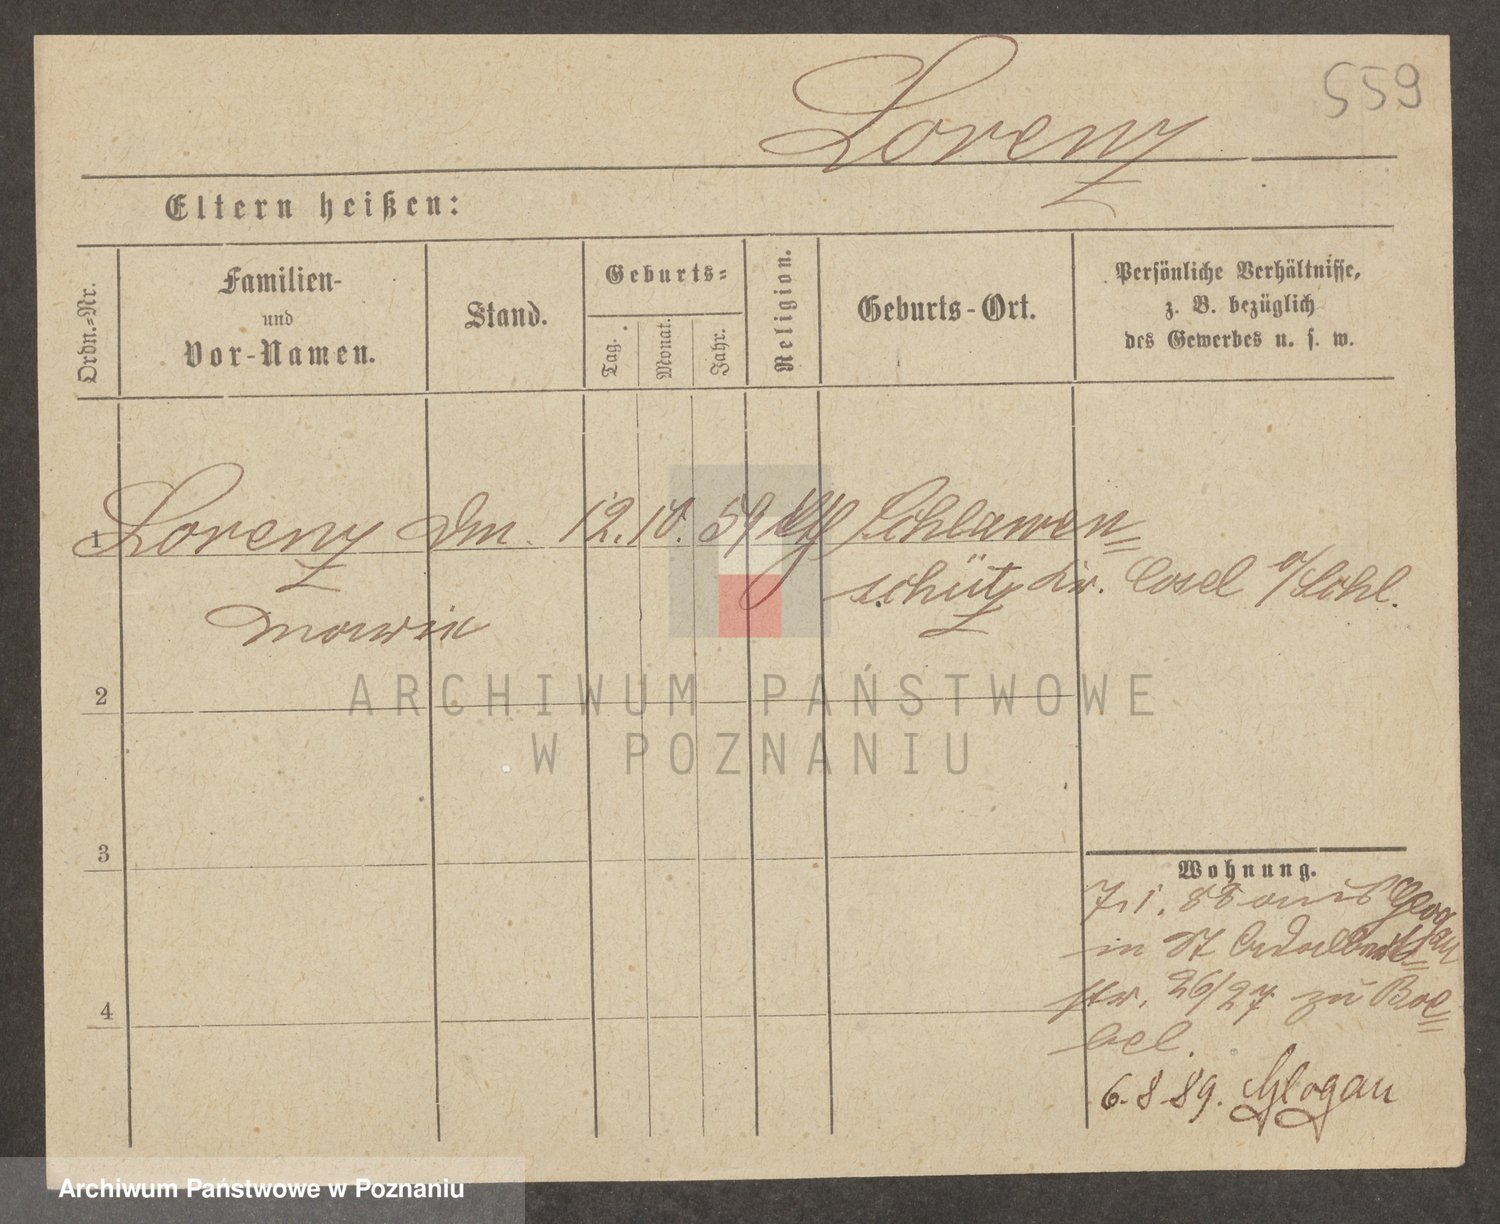 559
Lorenz
Eltern heißen:
Ordn.-Nr.
Familien-
und
Vor-Namen.
Stand.
Geburts-
Tag.
Monat.
Jahr.
Religion.
Geburts-Ort.
Persönliche Verhältnisse,
z. B. bezüglich
des Gewerbes u. s. w.
1 Lorenz Dm. 12. 10. 59 Schlawen-
schütz Kr. Cosel o/Schl.
Marie
2
3
4
ARCHIWUM PAŃSTWOWE
W POZNANIU
Wohnung.
7. 1. 88 aus Glogau
in St Adalbert-
str. 26/27 zu Boe-
bel.
6. 8. 89. Glogau
Archiwum Państwowe w Poznaniu